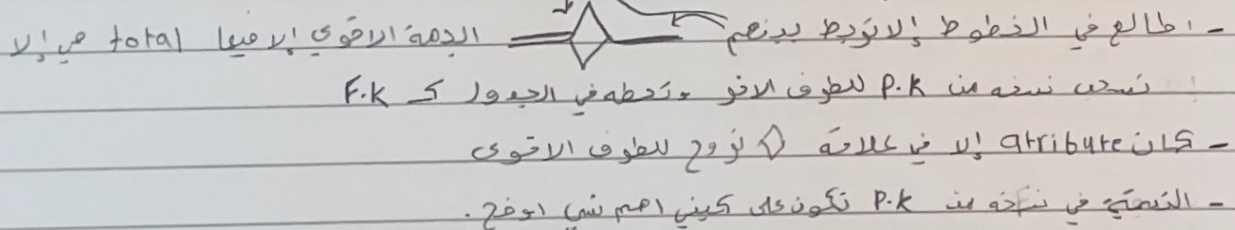 - اطالع في الخطوط إلا تربط بينهم الجهة الاقوى إلا فيها total هي إلا
نسحب نسخه من P.K للطرف الاخر ونحطه في الجدول كـ F.K
- كان atribute إلا في علاقة ◇ تروح للطرف الاقوى
- التسمية في نسخه من P.K تكون على كيفي اهم شي اوضح.